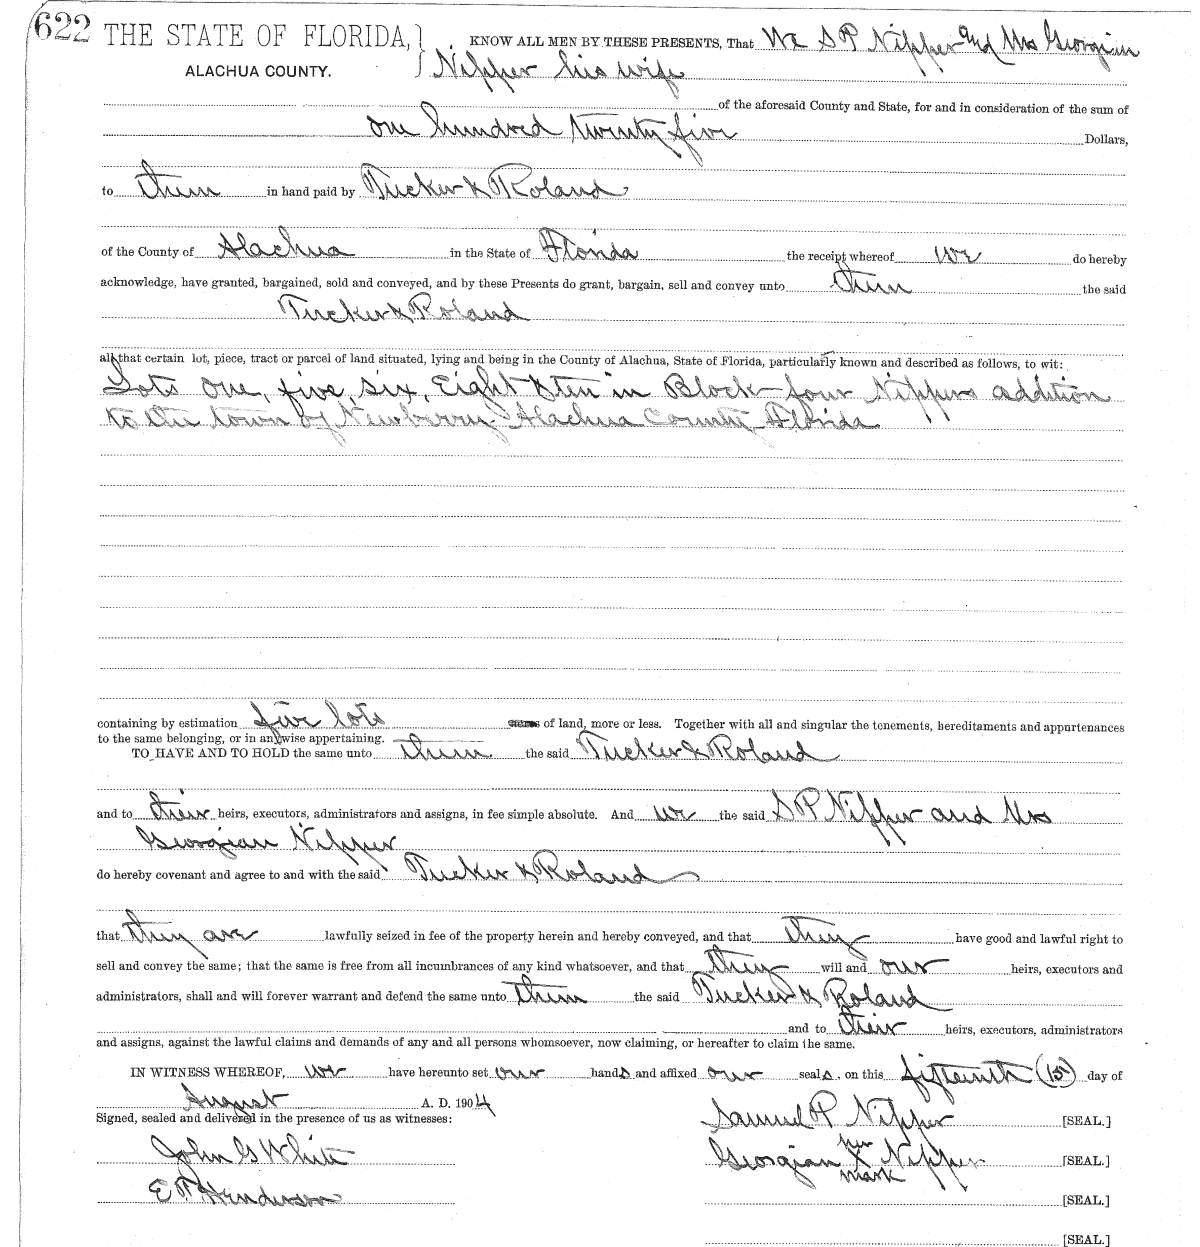 622 THE STATE OF FLORIDA, } KNOW ALL MEN BY THESE PRESENTS, That We S P Nipper and Mrs Georgian
ALACHUA COUNTY. } Nipper his wife
of the aforesaid County and State, for and in consideration of the sum of
one hundred twenty five Dollars,
to them in hand paid by Tucker & Roland
of the County of Alachua in the State of Florida the receipt whereof we do hereby
acknowledge, have granted, bargained, sold and conveyed, and by these Presents do grant, bargain, sell and convey unto them the said
Tucker & Roland
all that certain lot, piece, tract or parcel of land situated, lying and being in the County of Alachua, State of Florida, particularly known and described as follows, to wit:
Lots One, five, six, Eight & ten in Block four Nippers addition
to the town of Newberry Alachua County Florida
containing by estimation five lots acres of land, more or less. Together with all and singular the tenements, hereditaments and appurtenances
to the same belonging, or in anywise appertaining.
TO HAVE AND TO HOLD the same unto them the said Tucker & Roland
and to their heirs, executors, administrators and assigns, in fee simple absolute. And we the said S P Nipper and Mrs
Georgian Nipper
do hereby covenant and agree to and with the said Tucker & Roland
that they are lawfully seized in fee of the property herein and hereby conveyed, and that they have good and lawful right to
sell and convey the same; that the same is free from all incumbrances of any kind whatsoever, and that they will and our heirs, executors and
administrators, shall and will forever warrant and defend the same unto them the said Tucker & Roland
and to their heirs, executors, administrators
and assigns, against the lawful claims and demands of any and all persons whomsoever, now claiming, or hereafter to claim the same.
IN WITNESS WHEREOF, we have hereunto set our hands and affixed our seals, on this fifteenth (15) day of
August A. D. 1904
Signed, sealed and delivered in the presence of us as witnesses:
Samuel P Nipper [SEAL.]
John G White
her
Georgian X Nipper [SEAL.]
mark
E T Henderson
[SEAL.]
[SEAL.]